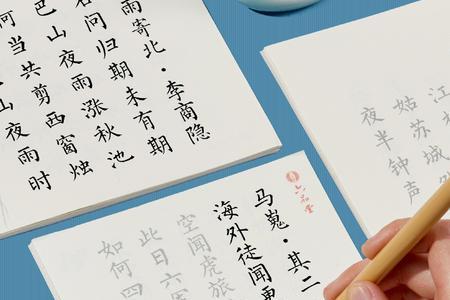 雨寄北·李商隐
君问归期未有期
巴山夜雨涨秋池
何当共剪西窗烛
山夜雨时
六品堂
马嵬·其二
海外徒闻更
空闻虎旅
此日六军
如何四
江
姑苏城外
夜半钟声